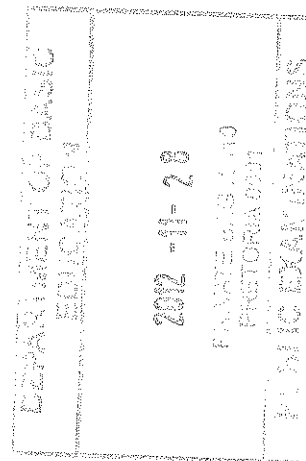 DEPARTMENT OF BASIC
EDUCATION
2012 -11- 28
PRIVATE BAG
PRETORIA 0001
EXAMINATIONS